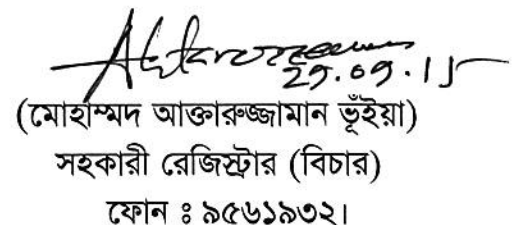 29.09.15
(মোহাম্মদ আক্তারুজ্জামান ভূঁইয়া)
সহকারী রেজিস্ট্রার (বিচার)
ফোন ঃ ৯৫৬১৯৩২।